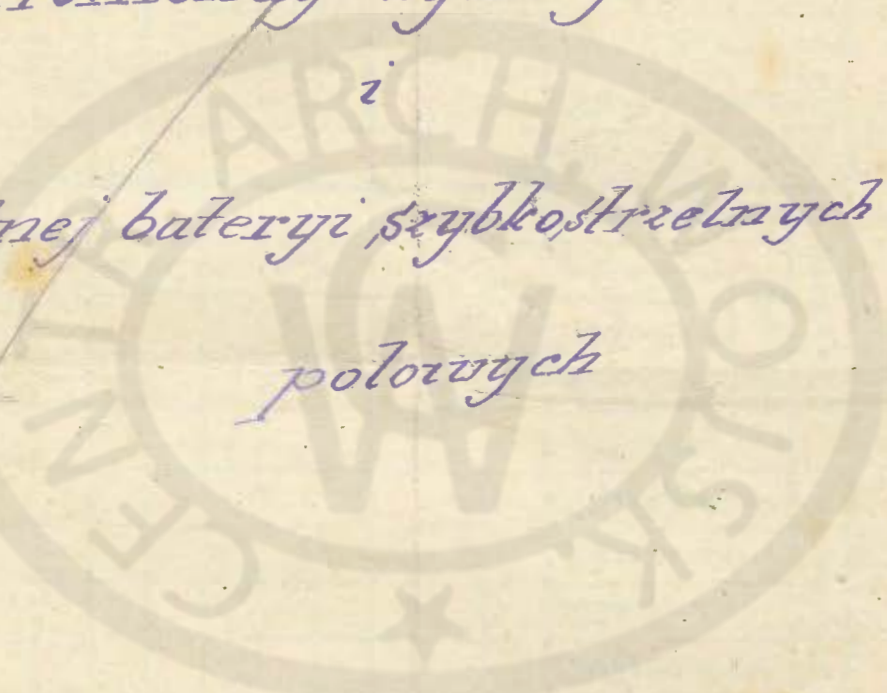 i
nej bateryi szybkostrzelnych
polowych
CENTR. ARCH. WOJSK.
CAW